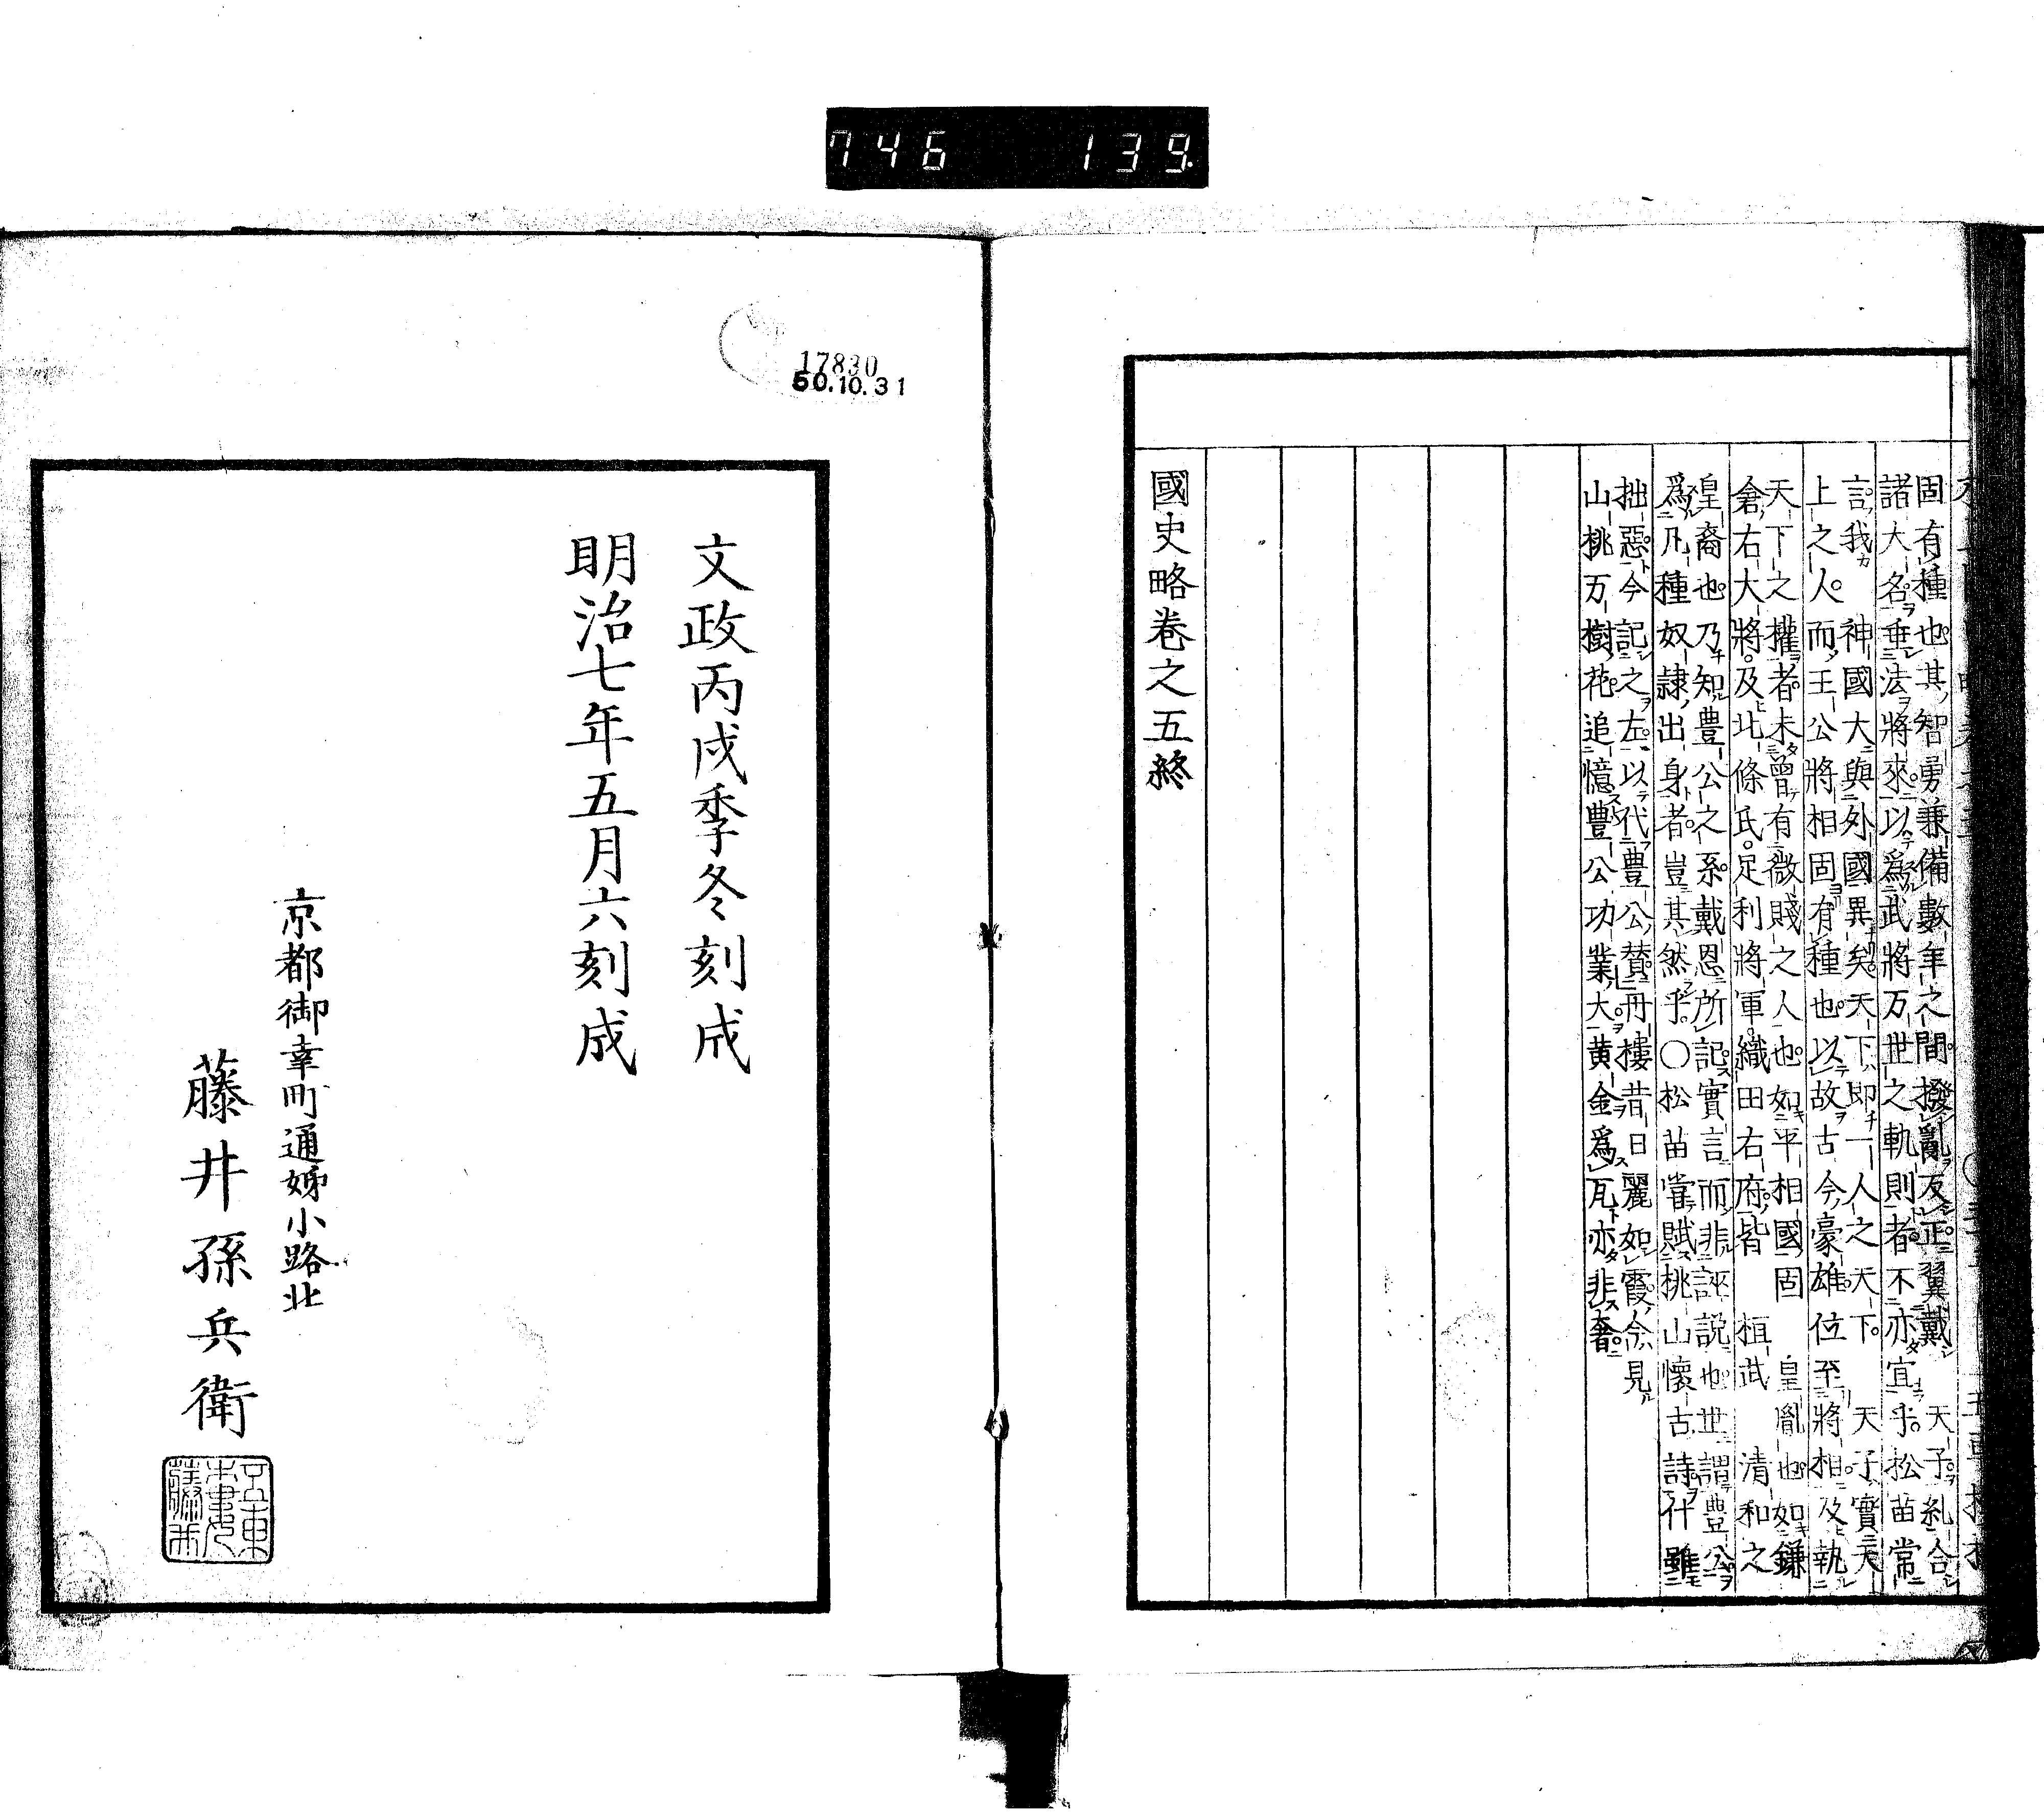 746 139
固有種也其智勇兼備數年之間撥亂反正翼戴 天子糺合
諸大名垂法將來以爲武將万世之軌則者不亦宜乎松苗常
言我 神國大與外國異矣天下即一人之天下 天子實天
上之人而王公將相固有種也以故古今豪雄位至將相及執
天下之權者未曾有微賤之人也如平相國固 皇胤也如鎌
倉右大將及北條氏足利將軍織田右府皆 桓武 清和之
皇裔也乃知豊公之系戴恩所記實言而非誣説也世謂豊公
爲凡種奴隷出身者豈其然乎〇松苗嘗賦桃山懷古詩什雖
拙惡今記之左以代豊公賛丹樓昔日麗如霞今見
山桃万樹花追憶豊公功業大黄金爲瓦亦非奢
國史略卷之五終
17830
50.10.31
文政丙戌季冬刻成
明治七年五月六刻成
京都御幸町通姊小路北
藤井孫兵衛